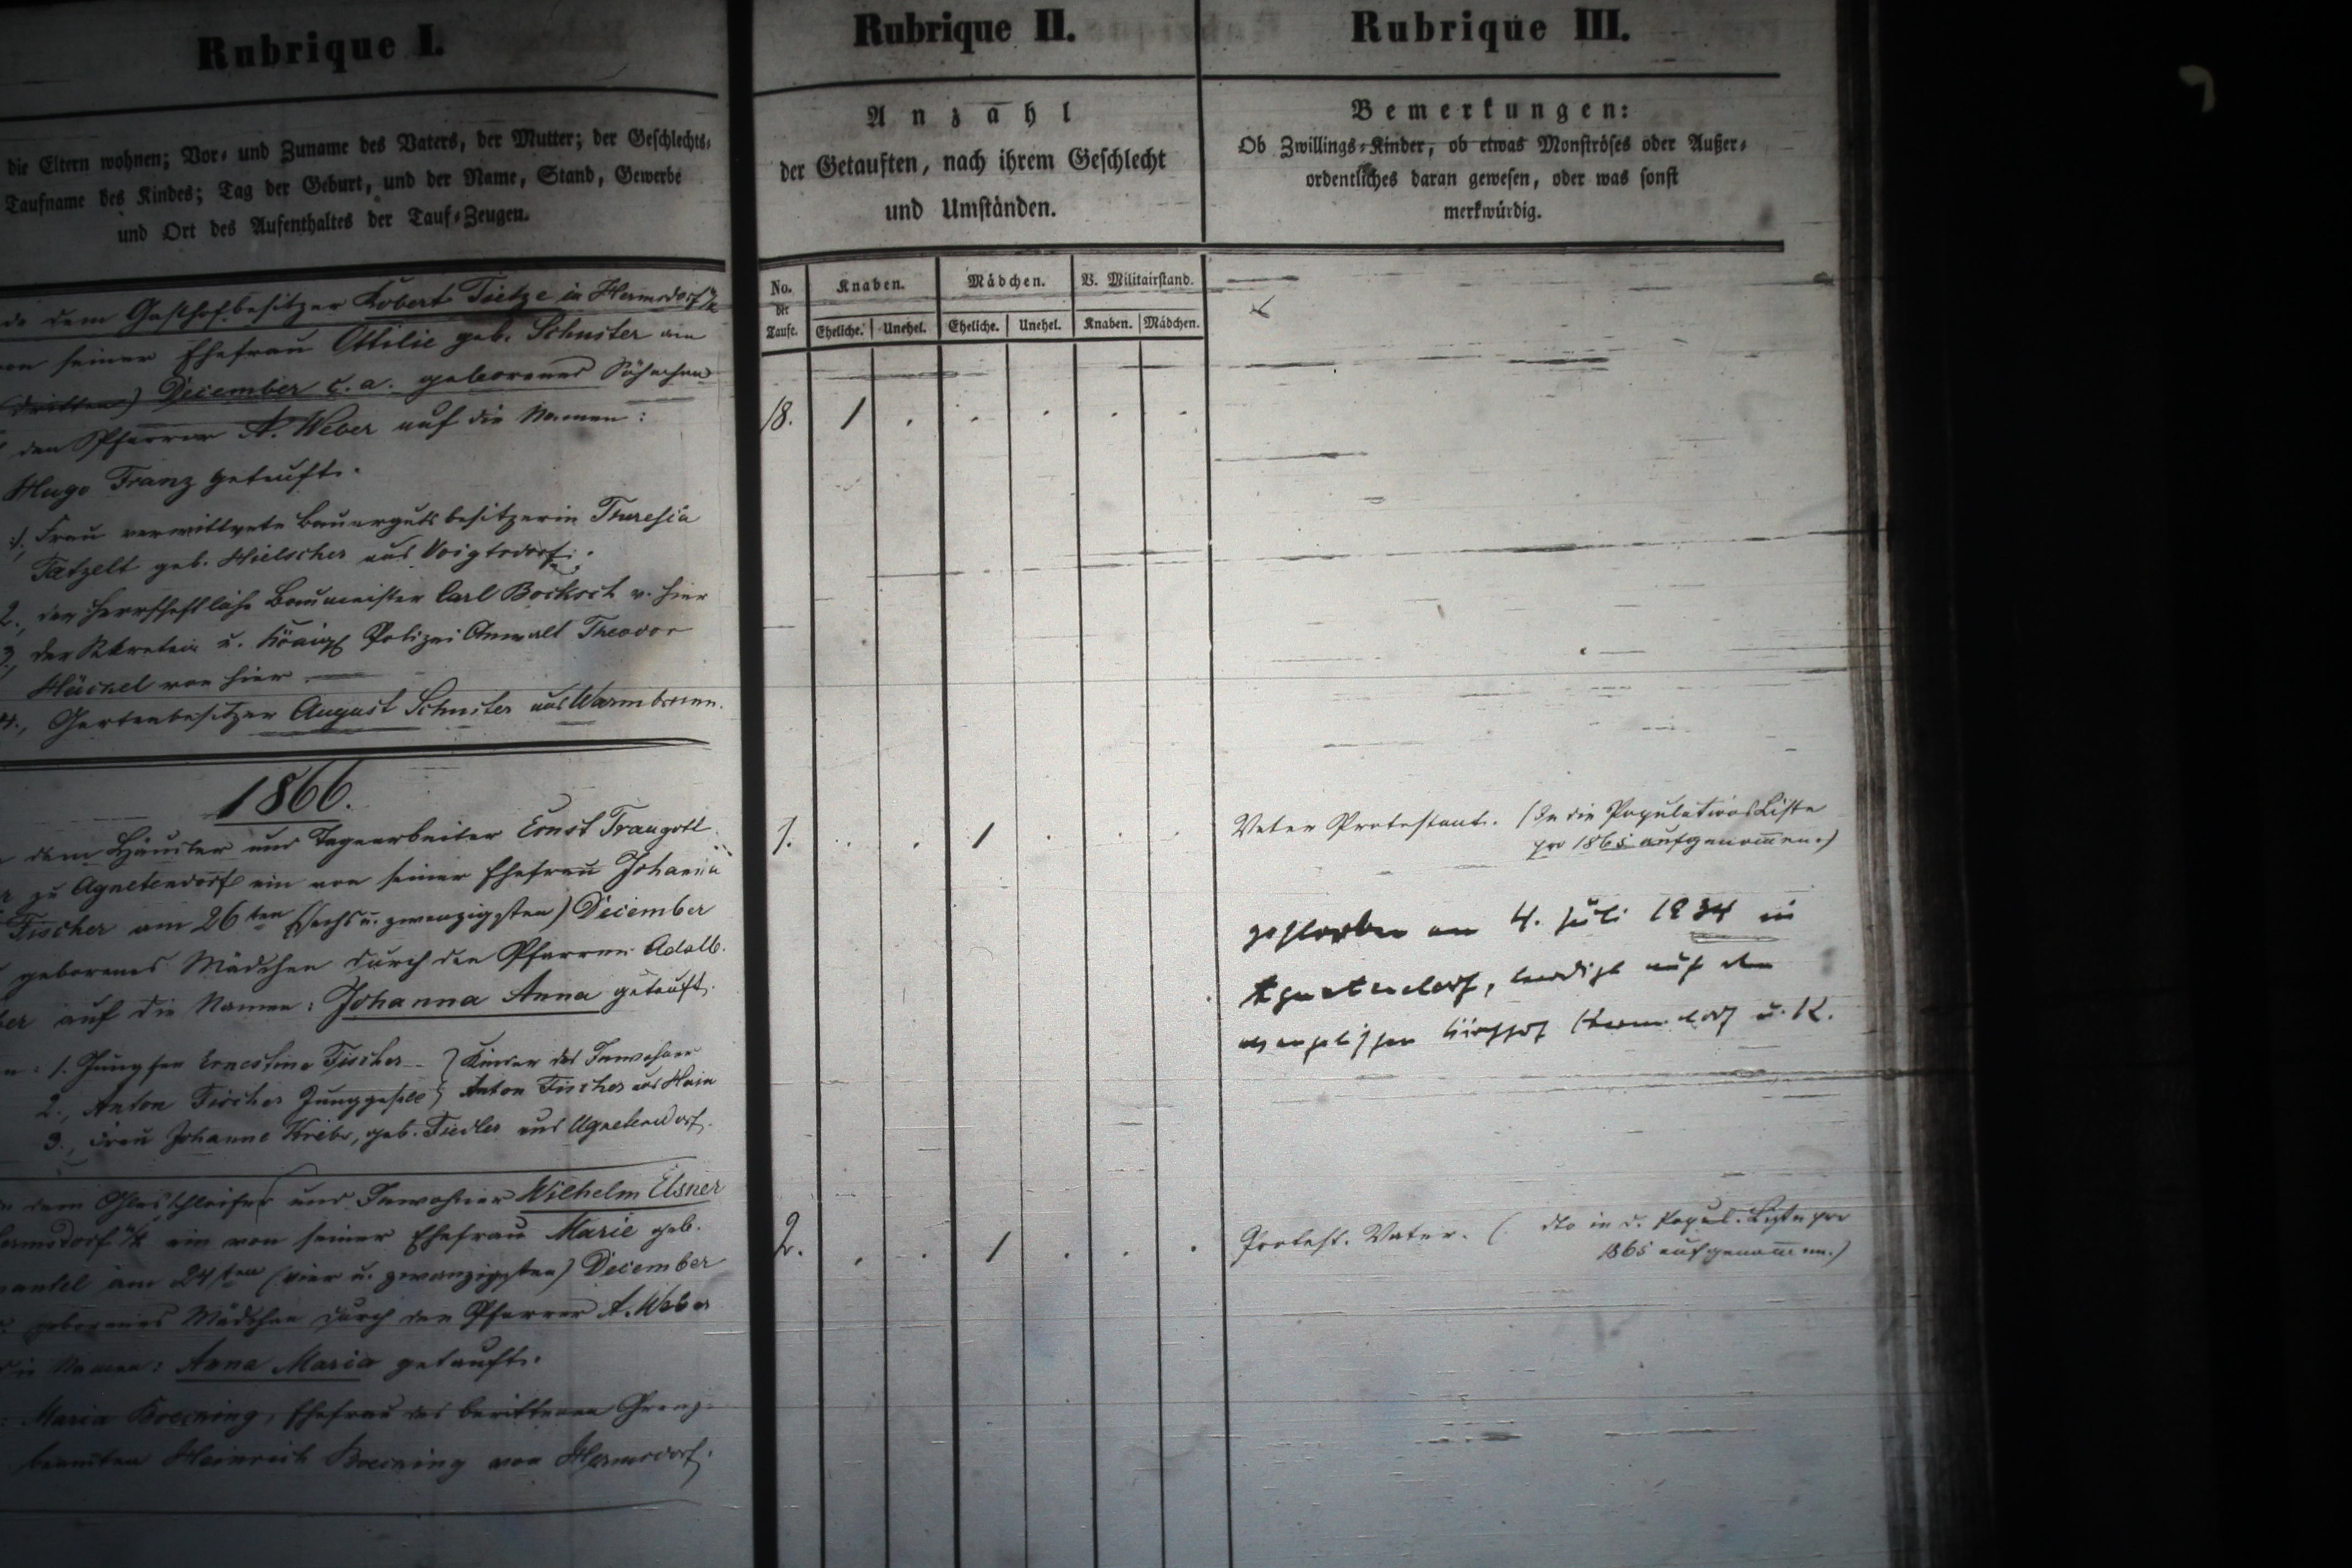 Rubrique I.
die Eltern wohnen; Vor- und Zuname des Vaters, der Mutter; der Geschlechts-
Taufname des Kindes; Tag der Geburt, und der Name, Stand, Gewerbe
und Ort des Aufenthaltes der Tauf-Zeugen.
dem Gasthofbesitzer Robert Tietze in Hermsdorf u/K
seiner Ehefrau Ottilie geb. Schuster am
(dritten) December c. a. geborenes Söhnchen
den Pfarrer A. Weber auf die Namen:
Hugo Franz getauft.
1., Frau verwittwete Bauergutsbesitzerin Theresia
Tatzelt geb. Hielscher aus Voigtsdorf.
2., der herrschaftliche Baumeister Carl Bocksch v. hier
3., der Sekretair u. Königl Polizei Anwalt Theodor
von hier
4., Gartenbesitzer August Schuster aus Warmbrunn.
1866.
dem Häusler und Tagearbeiter Ernst Traugott
zu Agnetendorf ein von seiner Ehefrau Johanna
Fischer am 26ten (sechs u. zwanzigsten) December
geborenes Mädchen durch den Pfarrer Adalb.
auf die Namen: Johanna Anna getauft.
1. Jungfer Ernestine Fischer } Kinder des Inwohner
2., Anton Fischer Junggesell } Anton Fischer aus Hain
3., Frau Johanne Krebs, geb. Fiedler aus Agnetendorf.
dem Glasschleifer und Inwohner Wilhelm Elsner
Hermsdorf u/K ein von seiner Ehefrau Marie geb.
am 24ten (vier u. zwanzigsten) December
geborenes Mädchen durch den Pfarrer A. Weber
die Namen: Anna Maria getauft.
Maria Boecning, Ehefrau des berittenen Grenz-
beamten Heinrich Boecning von Hermsdorf.
Rubrique II.
Anzahl
der Getauften, nach ihrem Geschlecht
und Umständen.
No. der Taufe. Knaben. Mädchen. V. Militairstand.
Eheliche. Unehel. Eheliche. Unehel. Knaben. Mädchen.
18. 1 . . . . .
1. . . 1 . . .
2. . . 1 . . .
Rubrique III.
Bemerkungen:
Ob Zwillings-Kinder, ob etwas Monströses oder Außer-
ordentliches daran gewesen, oder was sonst
merkwürdig.
Vater Protestant. (In die Populations Liste
pro 1865 aufgenommen.)
gestorben am 4. Juli 1934 in
Agnetendorf, beerdigt auf dem
evangelischen Kirchhof Hermsdorf u. K.
Protest. Vater. (dto in d. Popul. Liste pro
1865 aufgenommen.)